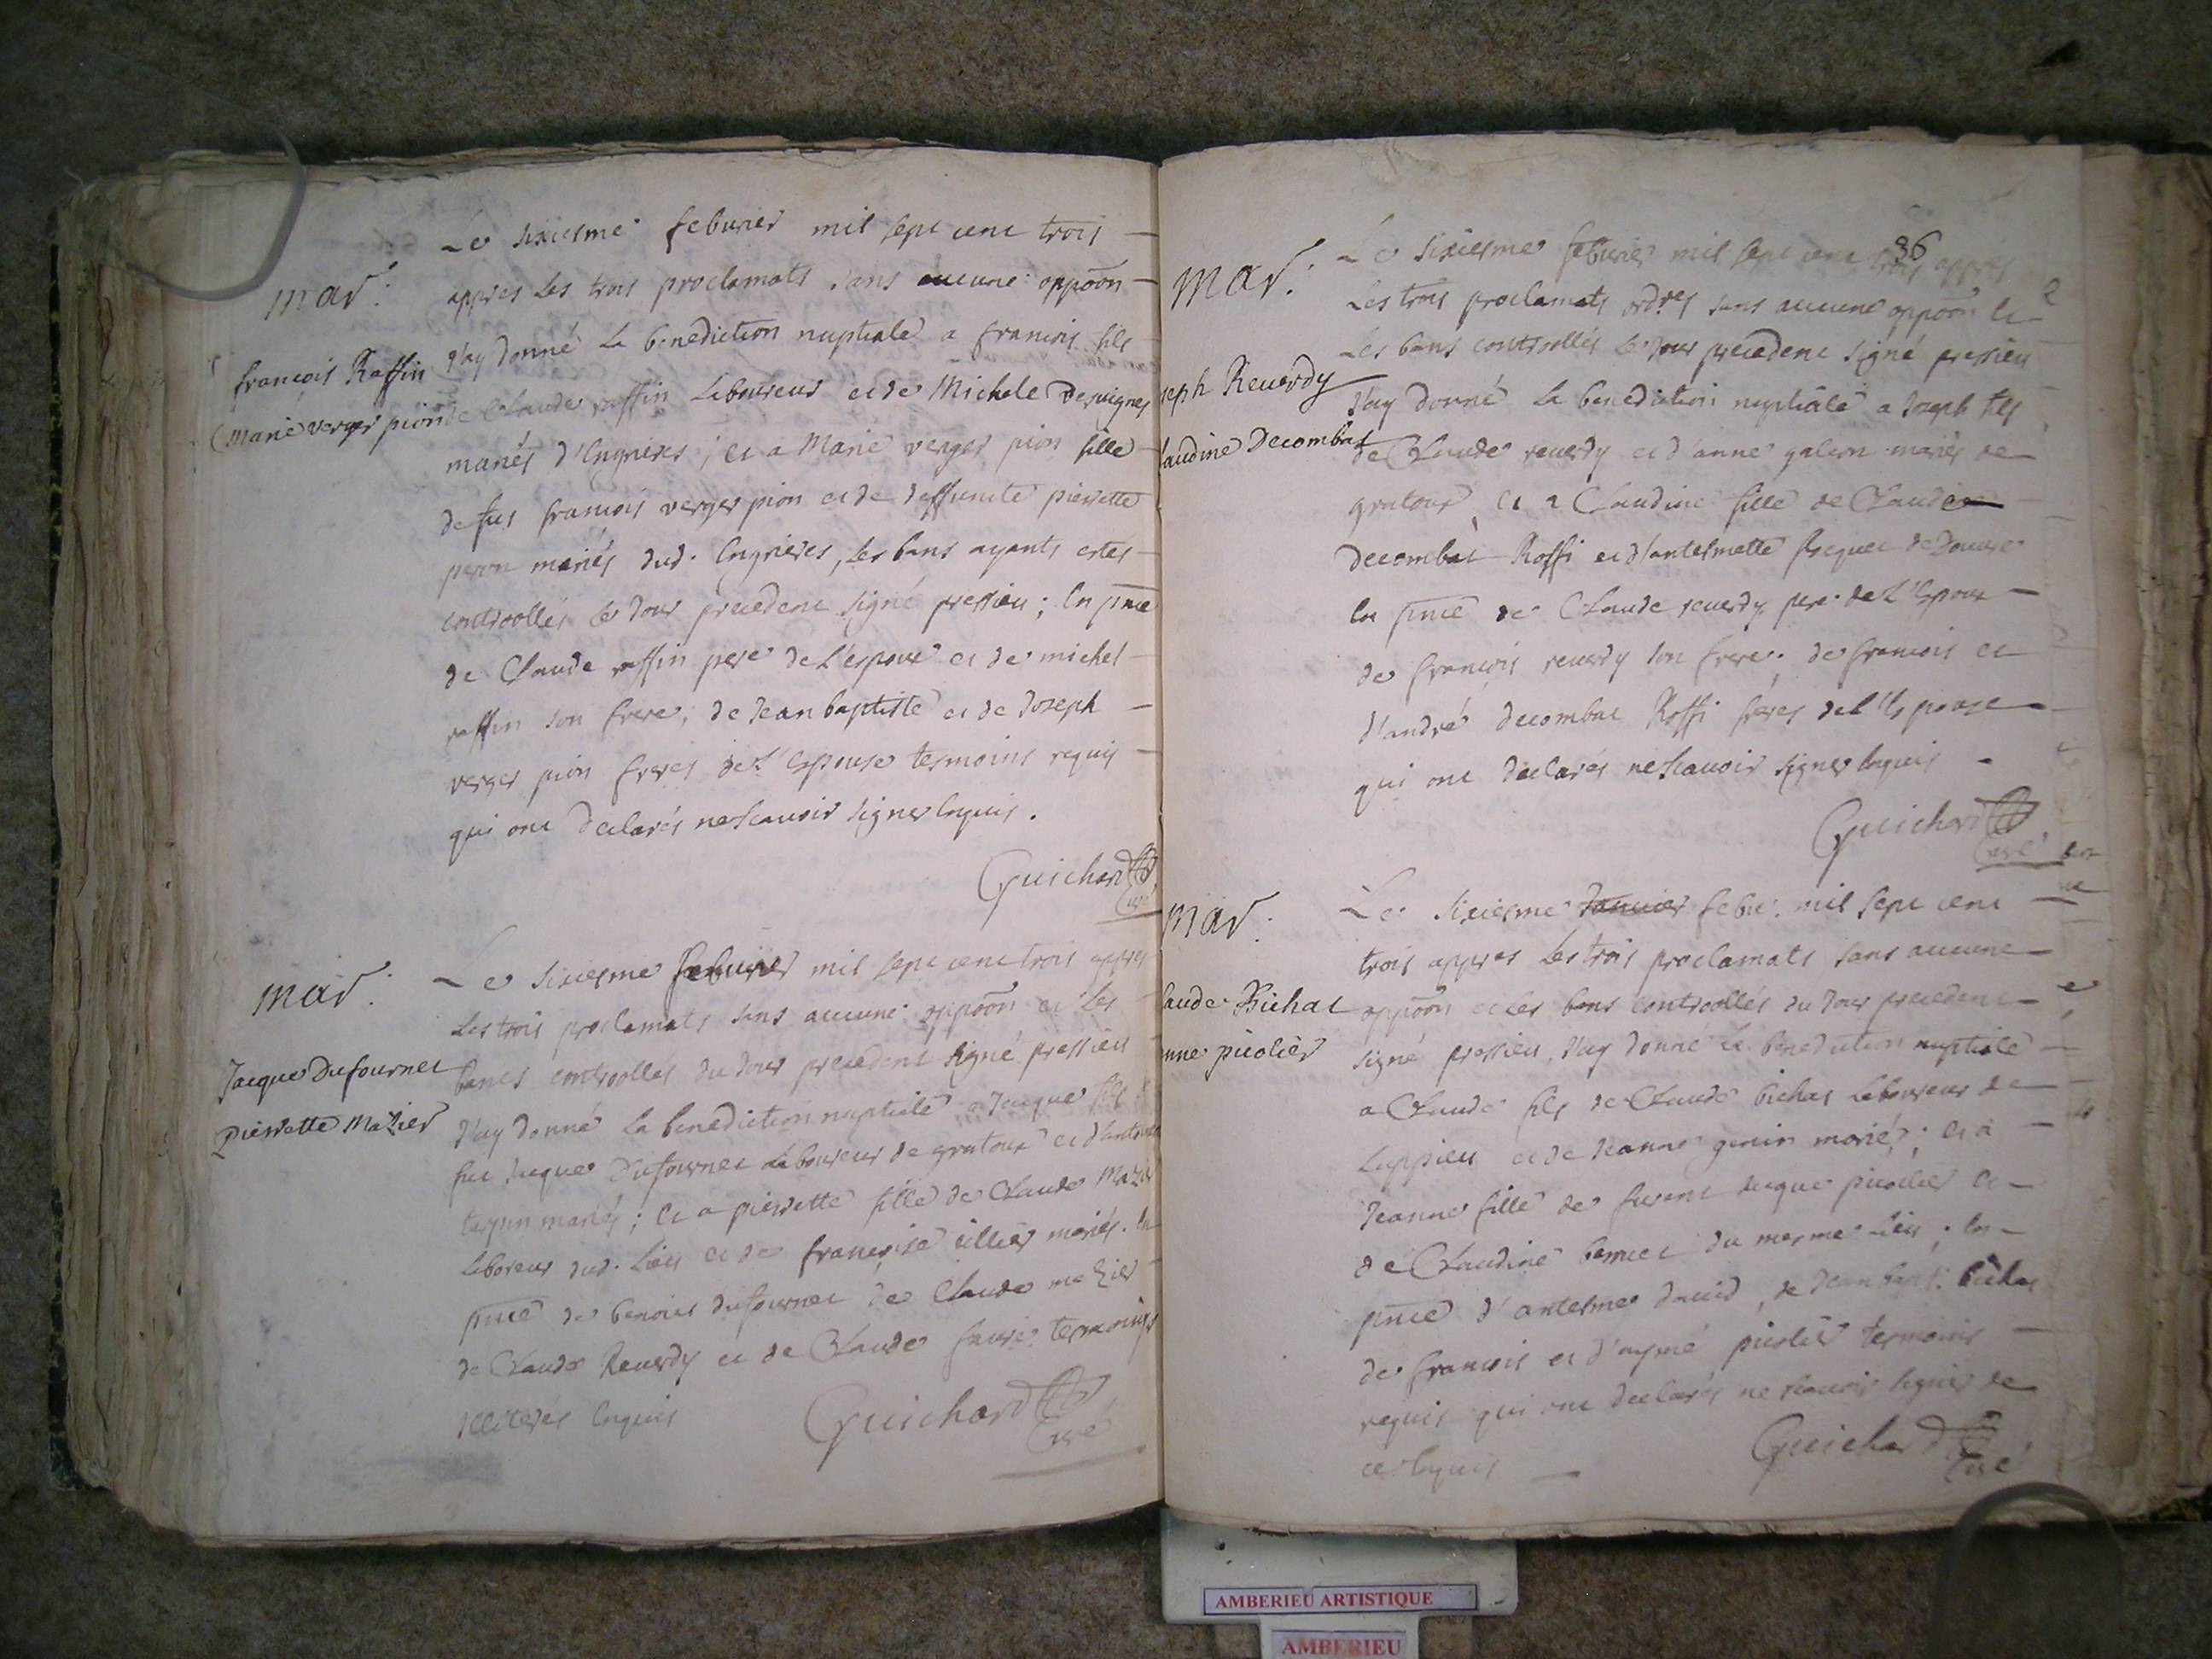 Le sixiesme febvrier mil sept cent trois
mar:
appres les trois proclamats sans aucune oppoôn
J'ay donné la benediction nuptiale a francois fils
francois Raffin
Marie verger pion
de Claude raffin laboureur et de Michele Desvignes
mariés d'Engnieres; et a Marie verger pion fille
de fus francois verger pion et de deffuncte pierrette
peron mariés dud. Engrieres, les bans ayants estes
controollés le Jour precedent signé pressieu; En pnce
de Claude raffin pere de L'espoux et de michel
raffin son frere; de Jean baptiste et de Joseph
verger pion freres de L'Espouse tesmoins requis
qui ont declarés ne scavoir signer Enquis.
Guichard
Curé
mar:
Le sixiesme febvrier mil sept cent trois appres
Les trois proclamats sans aucune oppoôn et Les
Jacque Dufournet
Pierrette Mazier
bancs controollés du Jour precedent signé pressieu
J'ay donné la benediction nuptiale a Jacque fils
feu Jacque Dufournet laboureur de gratoux et d'antoine
mariés; et a pierrette fille de Claude Mazier
laboreur dud. Lieu et de francoise mariés. En
pnce de benoist dufournet de Claude mazier
de Claude Reverdy et de Claude favre tesmoings
Illiterés Enquis
Guichard
Curé
86
mar:
Le sixiesme febvrier mil sept cent trois appres
Les trois proclamats sans aucune oppoôn et
Les bans controollés le Jour precedent signé pressieu
seph Reverdy
laudine Decombat
J'ay donné la benediction nuptiale a Joseph fils
de Claude reverdy et d'anne galeon mariés de
gratoux, et a Claudine fille de Claude
Decombat Roffi et d'antelmette de Douvre
En pnce de Claude reverdy pere de L'Espoux
de françois reverdy son frere; de francois et
d'andré decombat Roffi freres de l'Espouse
qui ont declarés ne scavoir signer Enquis
Guichard
Curé
mar:
Le sixiesme Janvier febvr. mil sept cent
trois appres Les trois proclamats sans aucune
laude Bichat
anne picolier
oppoôn et les bans controollés du Jour precedent
signé pressieu, J'ay donné la benediction nuptiale
a Claude fils de Claude bichat laboureur de
Luppieu et de Jeanne genin mariés; et a
Jeanne fille de furent Jacque picolier et
de Claudine du mesme Lieu; En
pnce d'antelme david, de Jean bapt. bichat
de francois et d'aymé picolier tesmoins
requis qui ont declarés ne scavoir signer de
ce Enquis
Guichard
Curé
AMBERIEU ARTISTIQUE
AMBERIEU